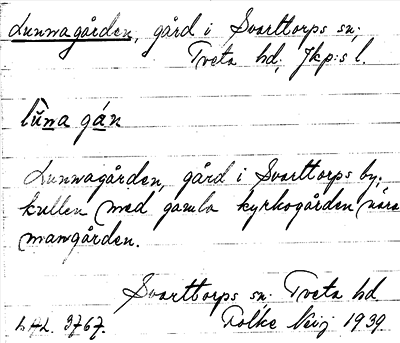 Lunnagården, gård i Svarttorps sn;
Tveta hd, Jkp:s l.
lùna gán
Lunnagården, gård i Svarttorps by;
kullen med gamla kyrkogården nära
mangården.
Svarttorps sn. Tveta hd
LAL. 3767. Folke 1939.